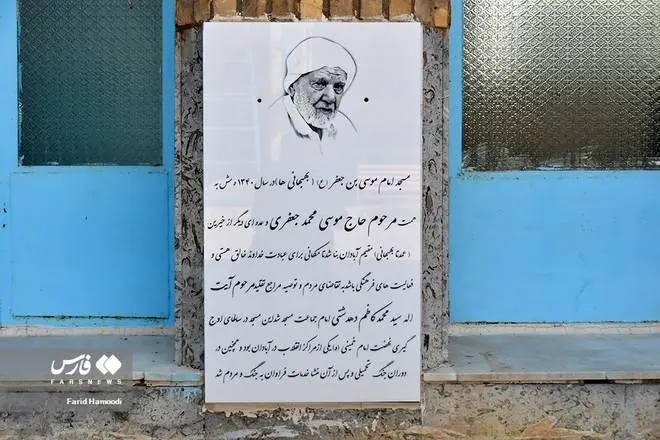 مسجد امام موسی بن جعفر (ع) (بهبهانی ها) در سال ۱۳۴۰ ه ش به
همت مرحوم حاج موسی محمد جعفری و عده ای دیگر از خیرین
(عمدتا بهبهانی) مقیم آبادان بنا شد تا مکانی برای عبادت خداوند خالق هستی و
فعالیت های فرهنگی باشد به تقاضای مردم و توصیه مراجع تقلید مرحوم آیت
اله سید محمد کاظم دهدشتی امام جماعت مسجد شد این مسجد در سالهای اوج
گیری نهضت امام خمینی (ره) یکی از مراکز انقلاب در آبادان بود و همچنین در
دوران جنگ تحمیلی و پس از آن منشا خدمات فراوان به جنگ و مردم شد
فارس
FARSNEWS
Farid Hamoodi